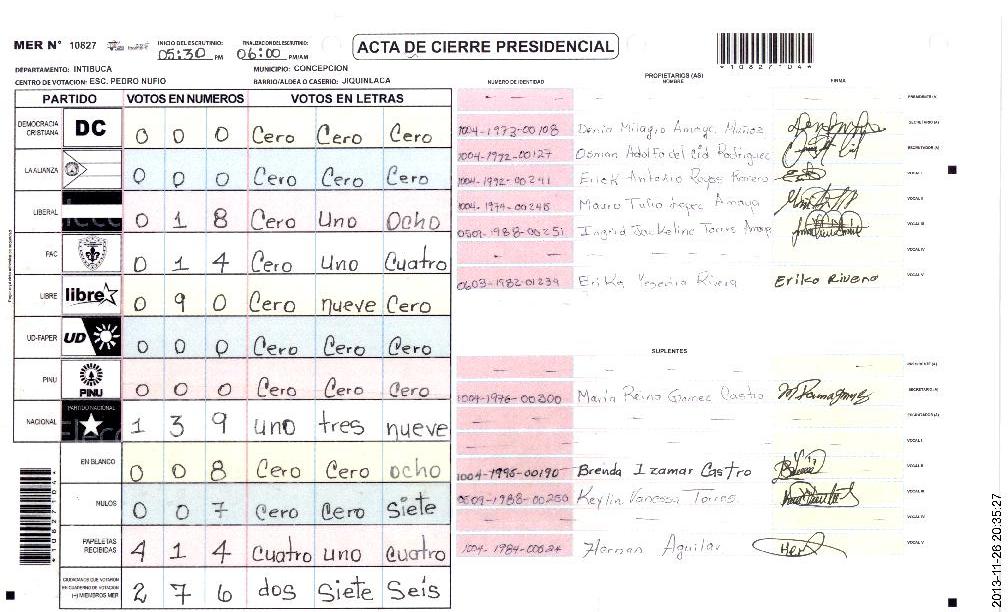 MER N° 10827
INICIO DEL ESCRUTINIO: 05:30 PM
FINALIZACION DEL ESCRUTINIO: 06:00 PM/AM
ACTA DE CIERRE PRESIDENCIAL
*10827104*
DEPARTAMENTO: INTIBUCA
MUNICIPIO: CONCEPCION
CENTRO DE VOTACION: ESC. PEDRO NUFIO
BARRIO/ALDEA O CASERIO: JIQUINLACA
PARTIDO VOTOS EN NUMEROS VOTOS EN LETRAS
DEMOCRACIA CRISTIANA DC 0 0 0 Cero Cero Cero
LA ALIANZA 0 0 0 Cero Cero Cero
LIBERAL 0 1 8 Cero Uno Ocho
PAC 0 1 4 Cero uno Cuatro
LIBRE libre 0 9 0 Cero nueve Cero
UD-FAPER UD 0 0 0 Cero Cero Cero
PINU PINU 0 0 0 Cero Cero Cero
NACIONAL PARTIDO NACIONAL 1 3 9 uno tres nueve
EN BLANCO 0 0 8 Cero Cero ocho
NULOS 0 0 7 Cero Cero Siete
PAPELETAS RECIBIDAS 4 1 4 Cuatro uno Cuatro
CIUDADANOS QUE VOTARON EN CUADERNO DE VOTACION (+) MIEMBROS MER 2 7 6 dos Siete Seis
*10827104*
NUMERO DE IDENTIDAD
PROPIETARIOS (AS)
NOMBRE
FIRMA
PRESIDENTE (A)
1004-1973-00108 Denia Milagro Amaya Muñoz SECRETARIO (A)
1004-1972-00127 Osman Adolfo del Cid Rodriguez ESCRUTADOR (A)
1004-1992-00241 Erick Antonio Reyes Romero VOCAL I
1004-1974-00246 Mauro Tulio Lopez Amaya VOCAL II
0501-1988-00251 Ingrid Jackeline Torres Amaya VOCAL III
VOCAL IV
0603-1982-01239 Erika Yesenia Rivera Erika Rivera VOCAL V
SUPLENTES
PRESIDENTE (A)
1004-1976-00300 Maria Reina Gomez Castro SECRETARIO (A)
ESCRUTADOR (A)
VOCAL I
1004-1996-00190 Brenda Izamar Castro VOCAL II
0509-1988-00250 Keylin Vanessa Torres VOCAL III
VOCAL IV
1004-1984-00624 Hernan Aguilar VOCAL V
2013-11-26 20:35:27